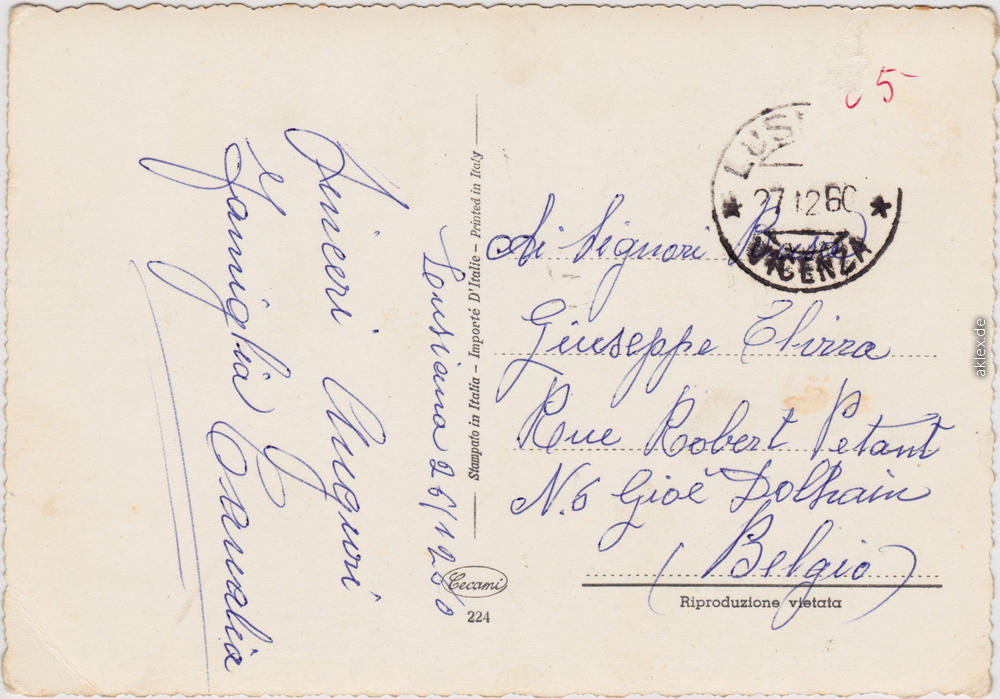 Sinceri Auguri
Famiglia
Lousiana 26/12/60
Stampato in Italia - Importé D'Italie - Printed in Italy
Cecami
224
5
LUSI
27 12 60
VICENZA
Ai Signori
Giuseppe Elvira
Rue Robert Petant
N.6 Gioé Dolhain
(Belgio)
Riproduzione vietata
aklex.de